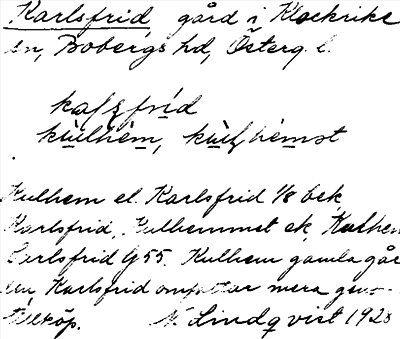 Karlsfrid, gård i Klockrike
sn, Bobergs hd, Österg. l.
kɑʃʃfrid
kùlhèm, kùlhèmet
Kulhem el. Karlsfrid 1/8 bek
Karlsfrid, Kulhemmet ek, Kulhem
Carlsfrid G 55. Kulhem gamla går
Karlsfrid omfattar mera gen-
tillköp. N Lindqvist 1928